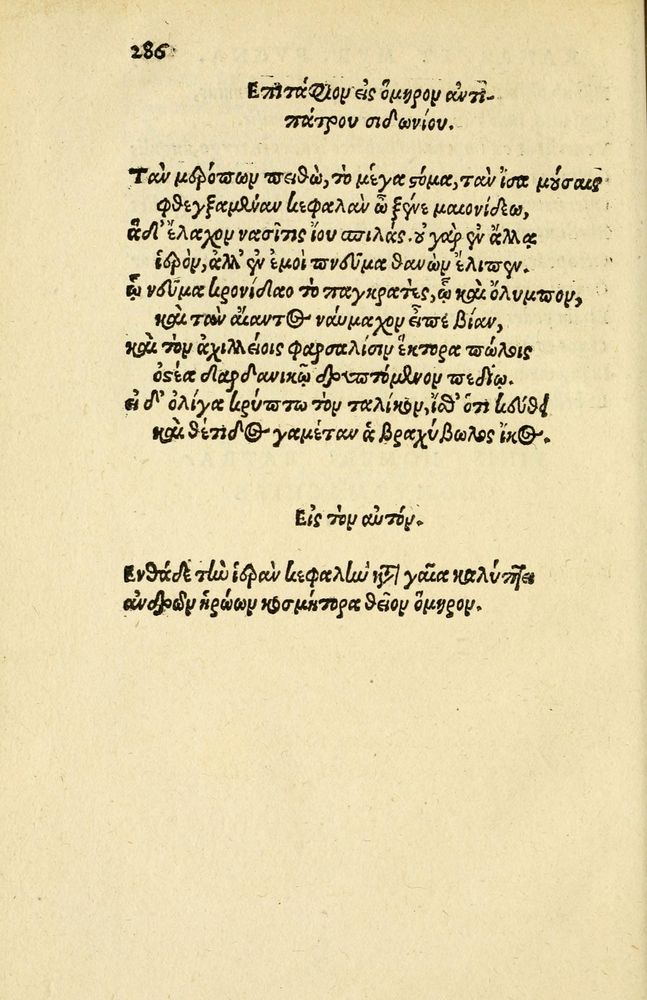 286
Επιτάφιον εἰς ὅμηρον ἀντι-
πάτρου σιδωνίου.
Τὰν μερόπων πειθὼ, τὸ μέγα στόμα, τὰν ἴσα μούσαις
φθεγξαμέναν κεφαλὰν ὦ ξένε μαιονίδεω,
ἅδ' ἔλαχον νασῖτις ἴου σπιλάς. οὐ γὰρ ἐν ἄλλᾳ
ἱερὸν, ἀλλ' ἐν ἐμοὶ πνεῦμα θανὼν ἔλιπεν.
ᾧ νεῦμα κρονίδαο τὸ παγκρατὲς, ᾧ καὶ ὄλυμπον,
καὶ τὰν αἴαντος ναύμαχον εἶπε βίαν,
καὶ τὸν ἀχιλλείοις φαρσαλίσιν ἕκτορα πώλοις
ὀστέα δαρδανικῷ δρυπτόμενον πεδίῳ.
εἰ δ' ὀλίγα κρύπτω τὸν ταλίκον, ἴσθ' ὅτι κεύθει
καὶ θέτιδος γαμέταν ἁ βραχύβωλος ἴκος.
Εἰς τὸν αὐτόν.
Ενθάδε τὴν ἱερὰν κεφαλὴν κατὰ γαῖα καλύπτει
ἀνδρῶν ἡρώων κοσμήτορα θεῖον ὅμηρον.